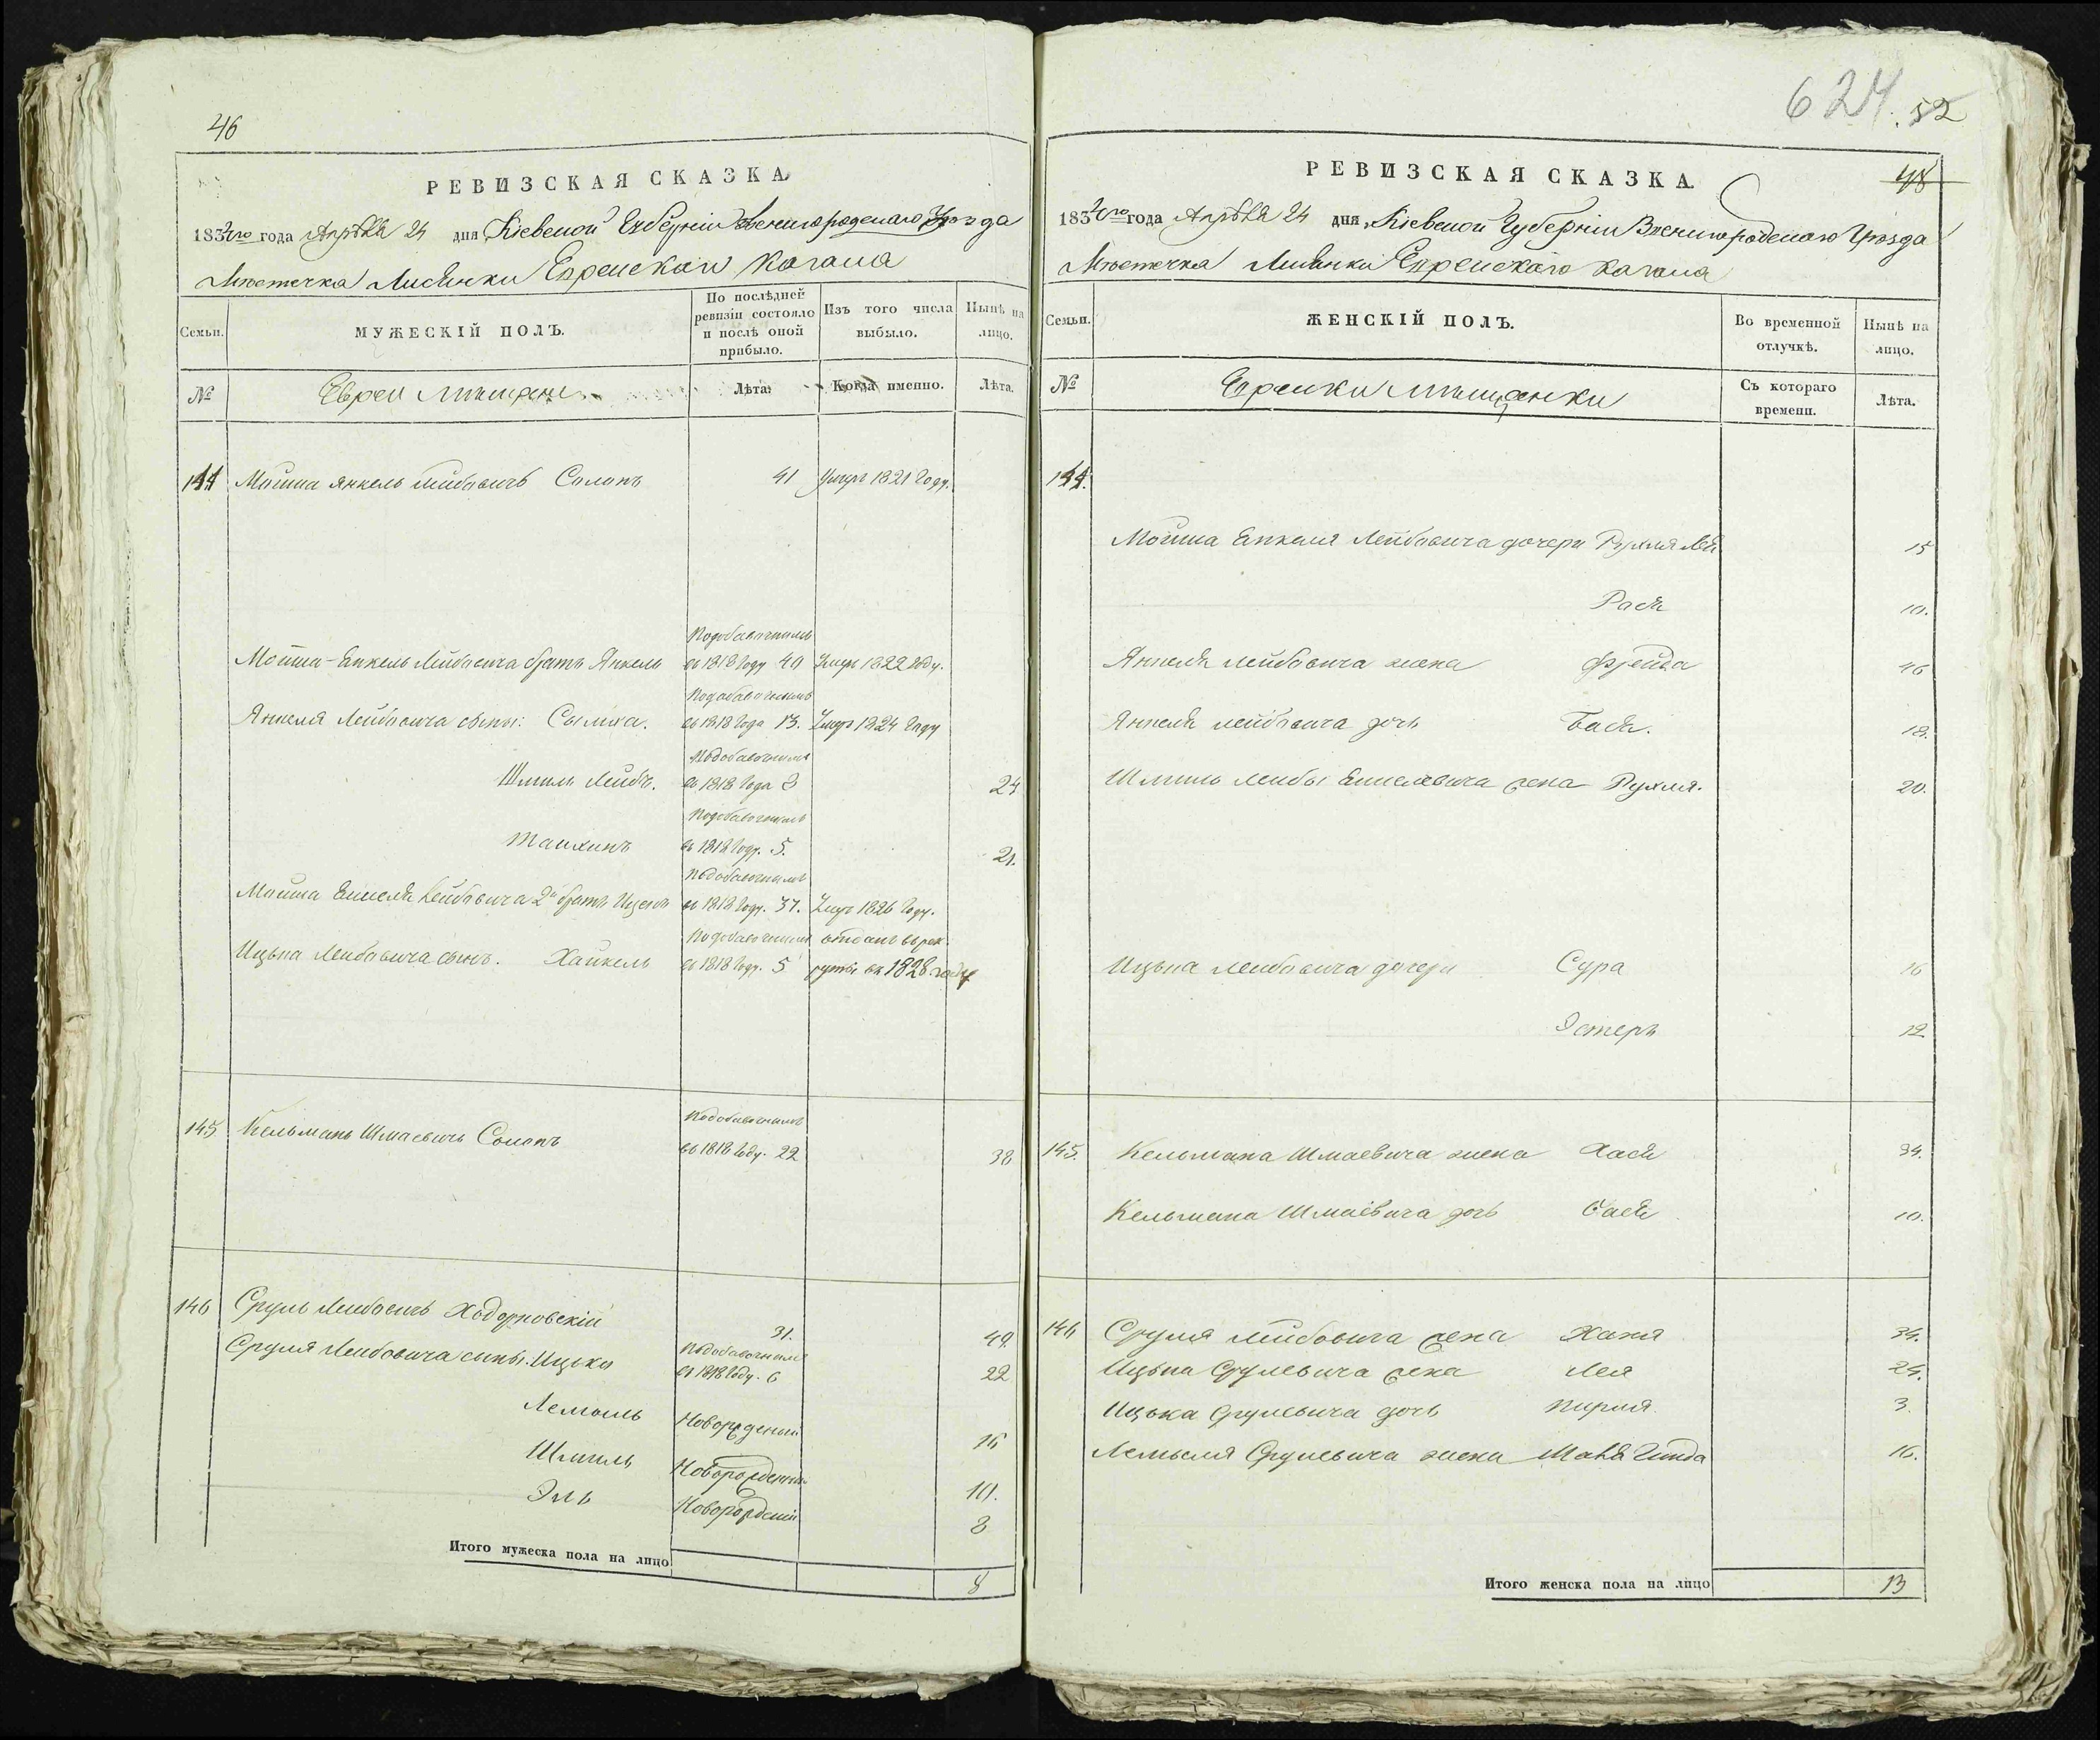 46
РЕВИЗСКАЯ СКАЗКА
1834го года Апрѣля 24 дня Кіевской Губерніи Звенигородскаго Уѣзда
Мѣстечка Лисянки Еврейскаго Кагала
Семьи.
МУЖЕСКІЙ ПОЛЪ.
По послѣдней ревизіи состояло и послѣ оной прибыло.
Изъ того числа выбыло.
Нынѣ на лицо.
№
Евреи Мѣщане
Лѣта.
Когда именно.
Лѣта.
144 Мошка Янкель Лейбовичъ Солопъ 41 Умеръ 1821 Году.
Подобавочнымъ
Мошка-Енкель Лейбовича братъ Янкель въ 1818 Году 40 Умеръ 1822 Году.
Подобавочнымъ
Янкеля Лейбовича сыны: Сымха. въ 1818 Года 13. Умеръ 1824 Году
Подобавочнымъ
Шмиль Лейбъ. въ 1818 Года 8 24
Подобавочнымъ
въ 1818 Году. 5. 21.
Подобавочнымъ
Мошка Енкеля Лейбовича 2й братъ Ицько въ 1818 Году. 37. Умеръ 1826 Году.
Подобавочнымъ отданъ въ рек
Ицька Лейбовича сынъ. Хайкель въ 1818 Году. 5 руты въ 1828 году
Подобавочнымъ
145 Кельманъ Шмаевичъ Солопъ въ 1818 Году. 22 38
146 Сруль Лейбовичъ Ходорковскій 31. 49.
Подобавочнымъ
Сруля Лейбовича сыны: Ицько въ 1818 Году. 6 22
Лемель Новорожденный 16
Шмиль Новорожденный 10.
Эль Новорожденный 8
Итого мужеска пола на лицо 8
624. 52
48
РЕВИЗСКАЯ СКАЗКА
1834го года Апрѣля 24 дня Кіевской Губерніи Звенигородскаго Уѣзда
Мѣстечка Лисянки Еврейскаго Кагала
Семьи.
ЖЕНСКІЙ ПОЛЪ.
Во временной отлучкѣ.
Нынѣ на лицо.
№
Еврейки Мѣщанки
Съ котораго времени.
Лѣта.
144.
Мошка Енкеля Лейбовича дочери Рухля Лея 15
Рася 10.
Янкеля Лейбовича жена Фрейда 46
Янкеля Лейбовича дочь Бася. 18.
Шмиль Лейбы Енкелевича жена Рухля. 20.
Ицька Лейбовича дочери Сура 16
Эстеръ 12
145. Кельмана Шмаевича жена Хася 34.
Кельмана Шмаевича дочь 10.
146 Сруля Лейбовича жена Ханя 34.
Ицька Срулевича жена Лея 24.
Ицька Срулевича дочь Пирля 3.
Лемеля Срулевича жена 16.
Итого женска пола на лицо 13